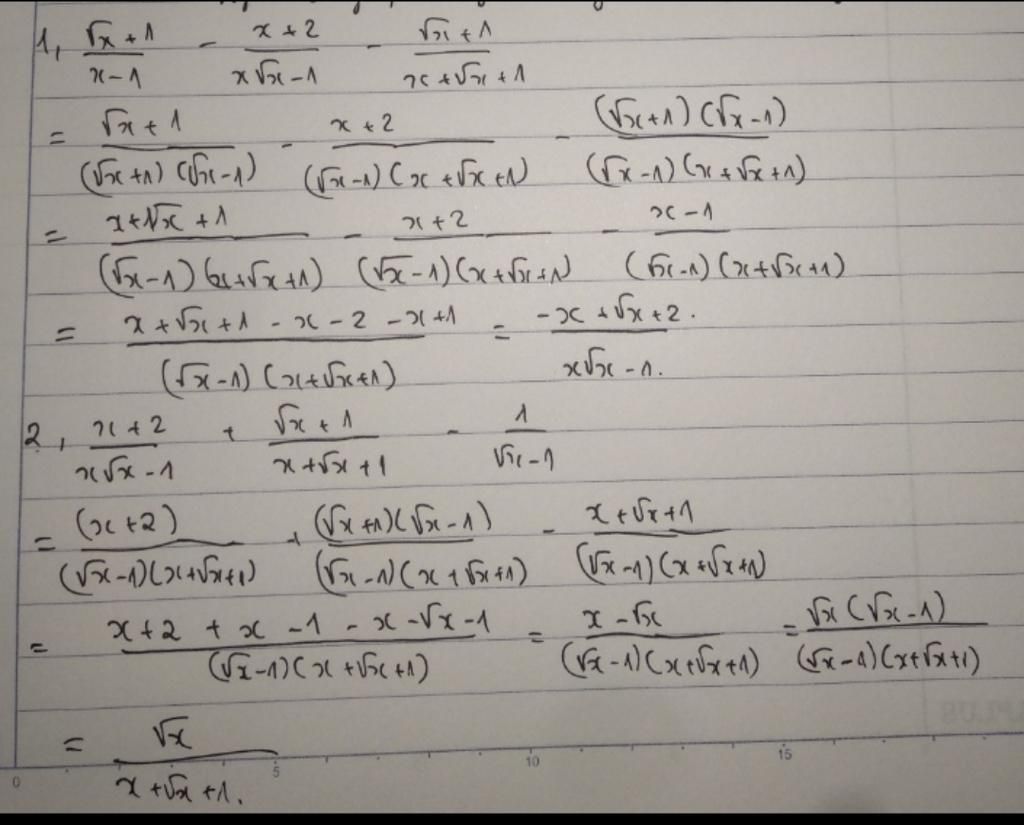 1, (√x + 1)/(x - 1) - (x + 2)/(x√x - 1) - (√x + 1)/(x + √x + 1)
= (√x + 1)/((√x + 1)(√x - 1)) - (x + 2)/((√x - 1)(x + √x + 1)) - ((√x + 1)(√x - 1))/((√x - 1)(x + √x + 1))
= (x + √x + 1)/((√x - 1)(x + √x + 1)) - (x + 2)/((√x - 1)(x + √x + 1)) - (x - 1)/((√x - 1)(x + √x + 1))
= (x + √x + 1 - x - 2 - x + 1)/((√x - 1)(x + √x + 1)) = (-x + √x + 2.)/(x√x - 1.)
2, (x + 2)/(x√x - 1) + (√x + 1)/(x + √x + 1) - 1/(√x - 1)
= (x + 2)/((√x - 1)(x + √x + 1)) + ((√x + 1)(√x - 1))/((√x - 1)(x + √x + 1)) - (x + √x + 1)/((√x - 1)(x + √x + 1))
= (x + 2 + x - 1 - x - √x - 1)/((√x - 1)(x + √x + 1)) = (x - √x)/((√x - 1)(x + √x + 1)) = (√x(√x - 1))/((√x - 1)(x + √x + 1))
= √x/(x + √x + 1.)
0 5 10 15